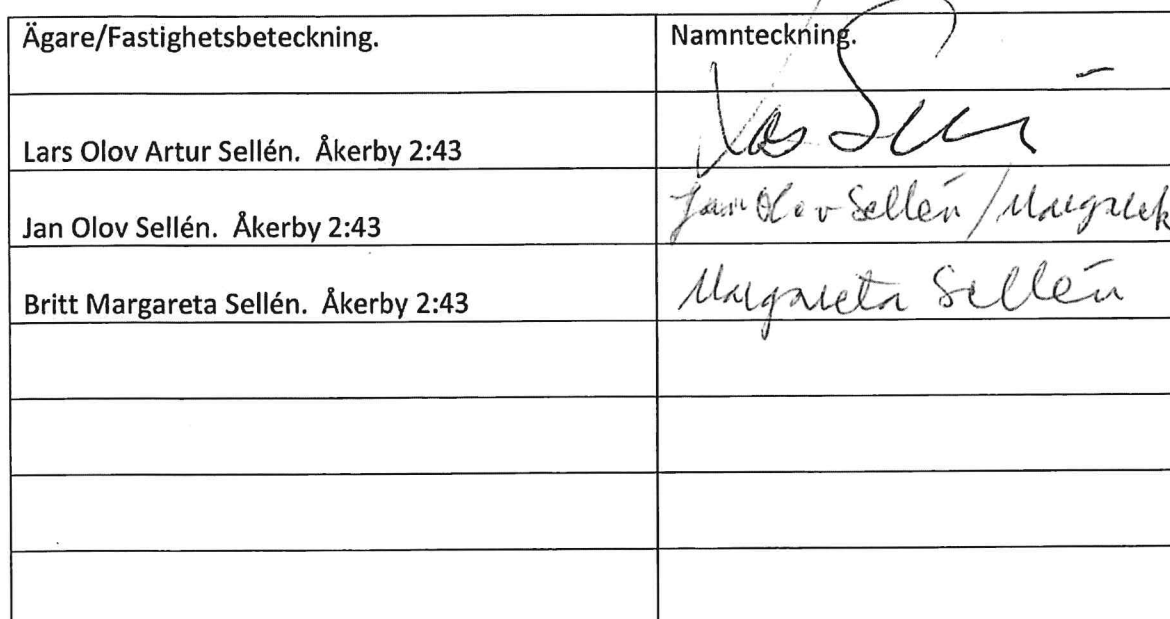 Ägare/Fastighetsbeteckning. Namnteckning.
Lars Olov Artur Sellén. Åkerby 2:43
Jan Olov Sellén. Åkerby 2:43 Jan Olov Sellén /
Britt Margareta Sellén. Åkerby 2:43 Margareta Sellén